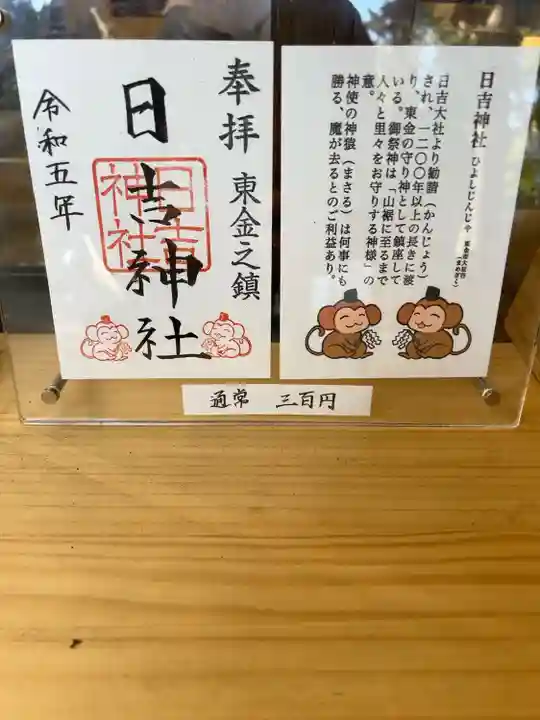 奉拝 東金之鎮
日吉神社
日吉神社
令和五年
日吉神社 ひよしじんじゃ
日吉大社より勧請（かんじょう）
され、一二〇〇年以上の長きに渡
り、東金の守り神として鎮座して
いる。御祭神は「山裾に至るまで
人々と里々をお守りする神様」の
意。
神使の神猿（まさる）は何事にも
勝る、魔が去るとのご利益あり。
通常 三百円